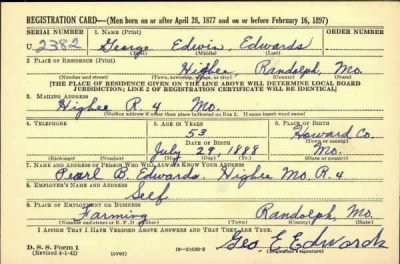 REGISTRATION CARD—(Men born on or after April 28, 1877 and on or before February 16, 1897)
SERIAL NUMBER 1. NAME (Print) ORDER NUMBER
U 2382 George Edwin Edwards
(First) (Middle) (Last)
2. PLACE OF RESIDENCE (Print)
Higbee, Randolph, Mo.
(Number and street) (Town, township, village, or city) (County) (State)
[THE PLACE OF RESIDENCE GIVEN ON THE LINE ABOVE WILL DETERMINE LOCAL BOARD
JURISDICTION; LINE 2 OF REGISTRATION CERTIFICATE WILL BE IDENTICAL]
3. MAILING ADDRESS
Higbee R 4 Mo.
[Mailing address if other than place indicated on line 2. If same insert word same]
4. TELEPHONE 5. AGE IN YEARS 6. PLACE OF BIRTH
53 Howard Co.
DATE OF BIRTH (Town or county)
July 29, 1888 Mo.
(Exchange) (Number) (Mo.) (Day) (Yr.) (State or country)
7. NAME AND ADDRESS OF PERSON WHO WILL ALWAYS KNOW YOUR ADDRESS
Pearl B. Edwards. Higbee Mo. R. 4
8. EMPLOYER'S NAME AND ADDRESS
Self
9. PLACE OF EMPLOYMENT OR BUSINESS
Farming Randolph, Mo.
(Number and street or R. F. D. number) (Town) (County) (State)
I AFFIRM THAT I HAVE VERIFIED ABOVE ANSWERS AND THAT THEY ARE TRUE.
Geo. E. Edwards
D. S. S. Form 1
(Revised 4-1-42) (over) (Registrant's signature)